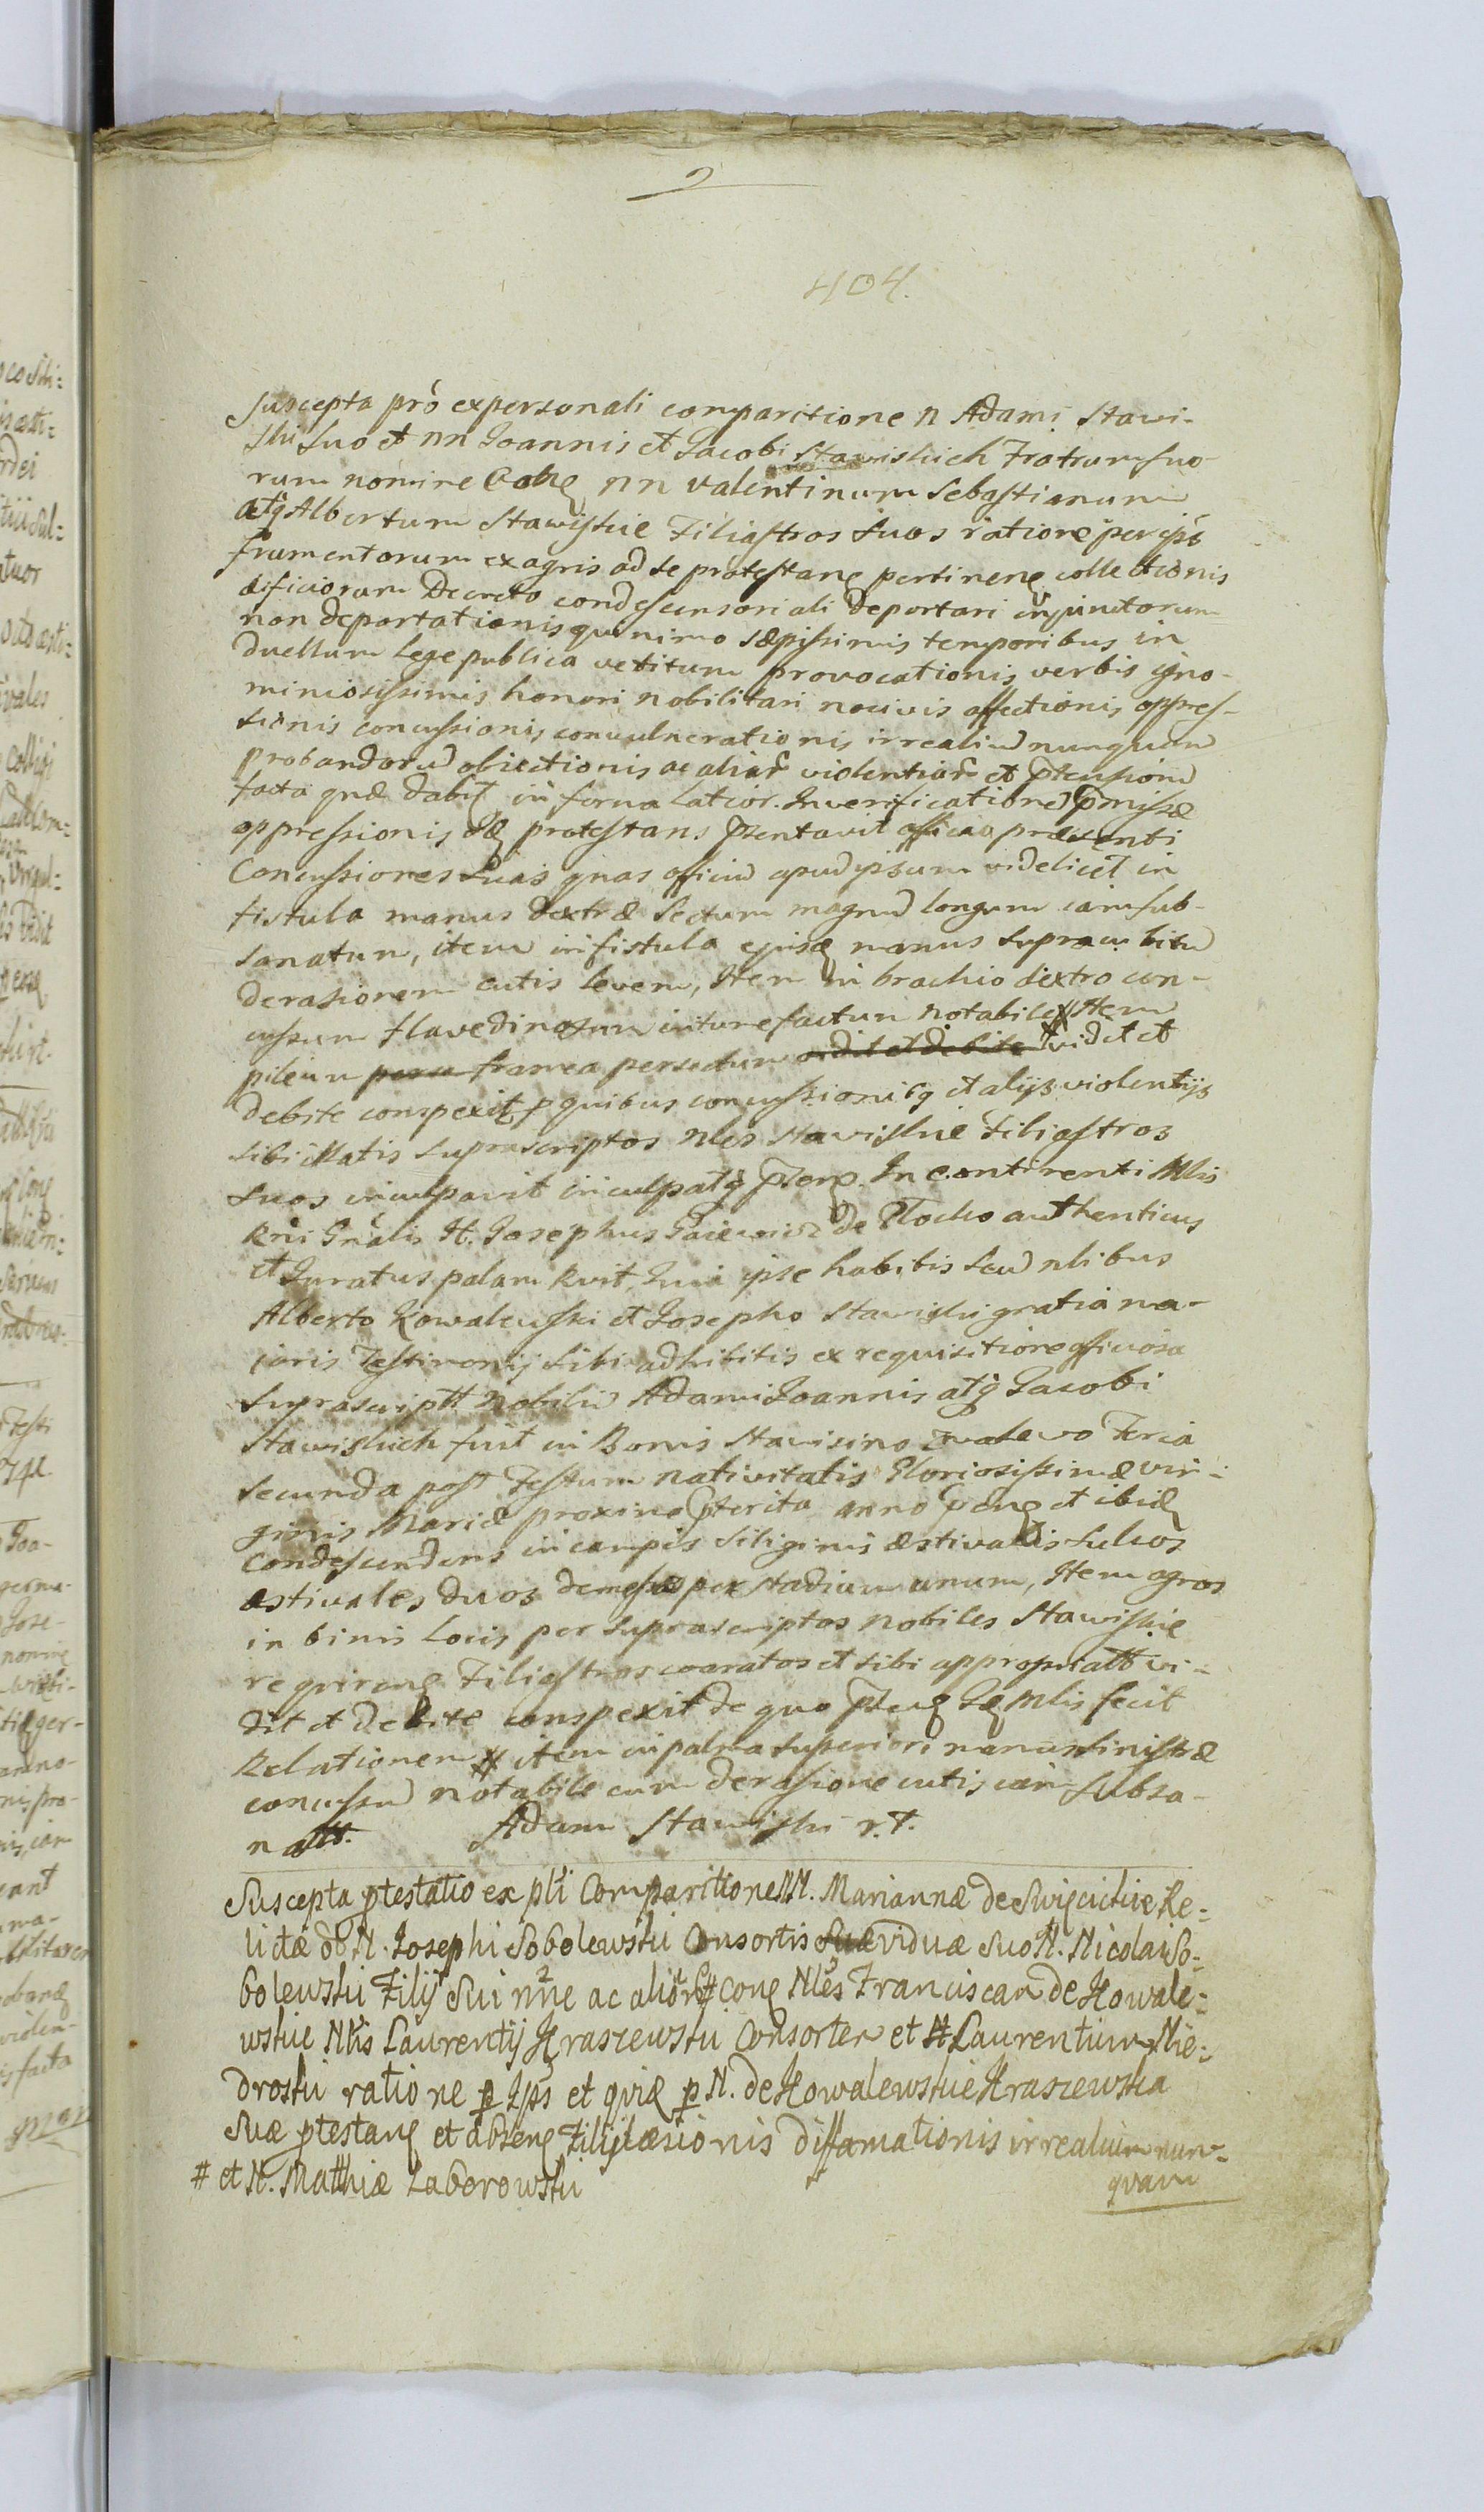 2
404.
Suscepta pro expersonali comparitione N Adami Stawi-
ski suo et NN Joannis et Jacobi Stawiskich Fratrum suo-
rum nomine NN Valentinum Sebastianum
atq Albertum Stawiskie Filiastros suos ratione per ips
frumentorum ex agris ad se protestan pertinen collectionis
ædificiorum Decreto condescensoriali deportari injunctorum
non deportationis quinimo sæpissimis temporibus in
duellum lege publica vetitum provocationis verbis igno-
miniosissimis honori nobilitari nocivis affectionis oppres-
sionis concussionis convulnerationis irrealiu nunquam
probandoru obiectionis ac aliar violentiar et ptensionu
facta quæ dabit in forma latior. In verificatione pmissæ
oppressionis protestans pntavit officio præsenti
Concussiones suas quas officiu apud ipsum videlicet in
fistula manus dextræ sectum magnu longum iam sub-
sanatum, item in fistula ejusd manus supra cubitu
derasionem cutis levem, Item in brachio dextro con-
cussum flavedinosum intumefactum notabile # Item
pileum framea persectum vidit et debite vidit et
debite conspexit p quibus concussionibq et alijs violentijs
sibi illatis suprascriptos Nles Stawiskie Filiastros
suos inculpavit inculpatq pten. In continenti Mlis
Rni Gnalis H. Josephus Gaiewicz de Plocko authenticus
et Juratus palam Rvit, Quia ipse habitis secu nlibus
Alberto Kowalewski et Josepho Stawiski gratia ma-
ioris Testimonij sibi adhibitis ex requisitione officiosa
suprascriptt Nobiliu Adami Joannis atq Jacobi
Stawiskich fuit in Bonis Stawisino Feria
secunda post Festum Nativitatis Gloriosissimæ Vir-
ginis Mariæ proxime pterita anno pñ et ibid
condescendens in campis siliginis æstivalis sulcos
æstivales duos demessos per stadium unum, Item agros
in binis locis per suprascriptos Nobiles Stawiskie
requiren Filiastros coaratos et sibi appropriatt vi-
dit et debite conspexit de quo pten Idq Mlis fecit
Relationem # item in palma superiori manus sinistræ
concussu notabile cum derasione cutis iam subsa-
natt. Adam Stawiski r.t.
Suscepta ptestatio ex pli Comparitione NN. Mariannæ de Re=
lictæ ol N. Josephi Sobolewski Consortis Suæ viduæ suo N. Nicolai So=
bolewski Filij sui nne ac alior # con Nles Franciscam de Kowale=
wskie Nlis Laurentij Kraszewski Consortem et N Laurentium Nie=
droski ratione p Ips et quid p N. de Kowalewskie Kraszewska
Suæ ptestan et absen Filij læsionis diffamationis irrealium nun=
quam
# et N. Mathiæ Zaborowski